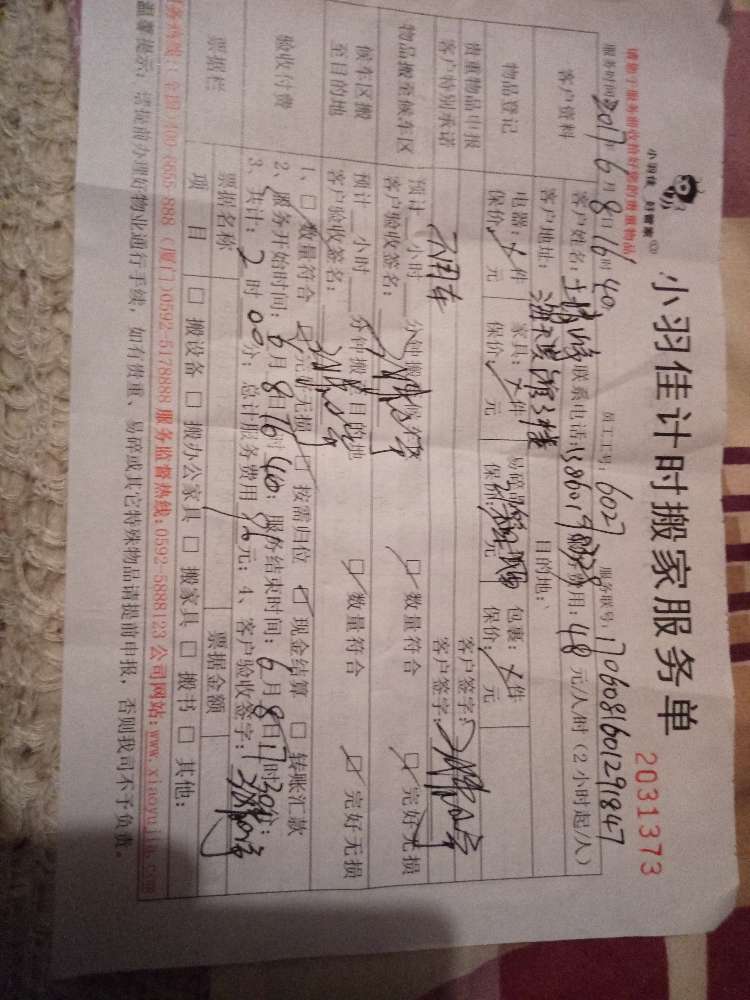 小羽佳 好管家 ®
小羽佳计时搬家服务单
2031373
请您于服务前收拾好您的贵重物品
服务时间:2017年6月8日16时40 员工工号:6027 服务联号:1706081601291847
客户资料 客户姓名: 联系电话: 服务费用:48元/人/时(2小时起/人)
客户地址: 目的地:
物品登记 电器: 件 家具: 件 易碎品 包裹: 件
保价: 元 保价: 元 保价 元 保价: 元
贵重物品申报 客户签字:
客户特别承诺 客户签字:
物品搬至候车区 预计 小时 分钟搬 候车 □ 数量符合 □ 完好无损
客户验收签名:
候车区搬至目的地 预计 小时 分钟搬至目的地 □ 数量符合 □ 完好无损
客户验收签名:
验收付费 1、□ 数量符合 □ 完好无损 □ 按需归位 □ 现金结算 □ 转账汇款
2、服务开始时间:6月8日16时40分;服务结束时间:6月8日17时 分;
3、共计:2时00分;总计服务费用 元;4、客户验收签字:
票据栏 票据名称 票据金额
项目 □ 搬设备 □ 搬办公家具 □ 搬家具 □ 搬书 □ 其他:
服务热线:(全国)400-8865-888 (厦门)0592-5178888 服务监督热线:0592-5888123 公司网站:www.xiaoyujia.com
温馨提示:请提前办理好物业通行手续,如有贵重、易碎或其它特殊物品请提前申报,否则我司不予负责。